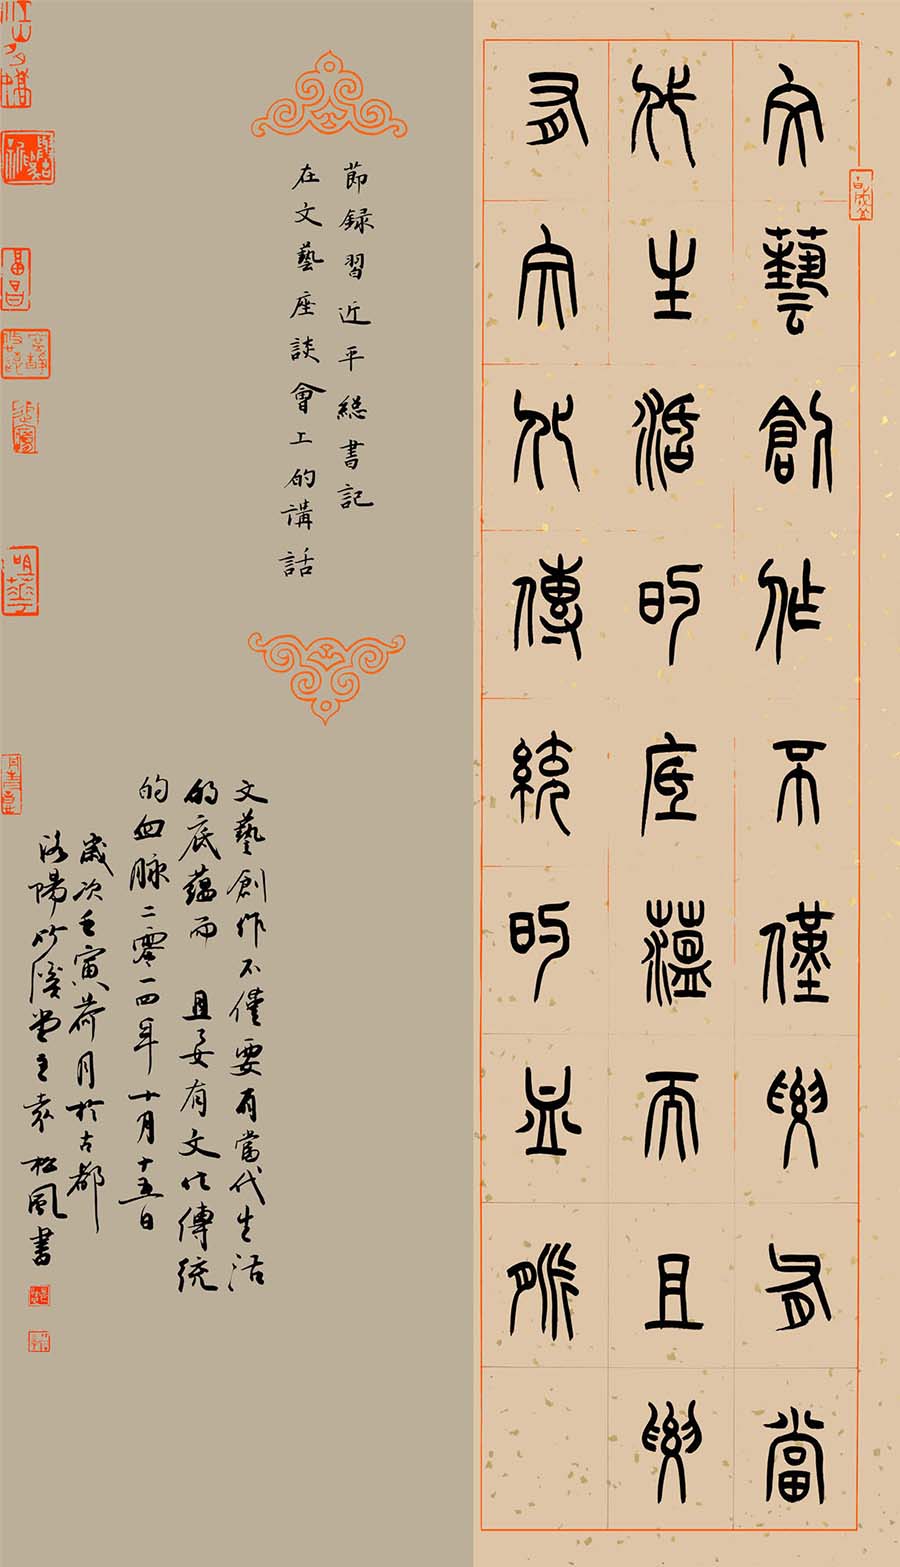 文藝創作不僅要有當
代生活的底薀而且要
有文化傳統的血脈
節録習近平総書記
在文藝座談會上的講話
文藝創作不僅要有當代生活
的底藴而且要有文化傳統
的血脉二零一四年十月十五日
歲次壬寅荷月於古都
洛陽堂主袁松風書
江山多嬌